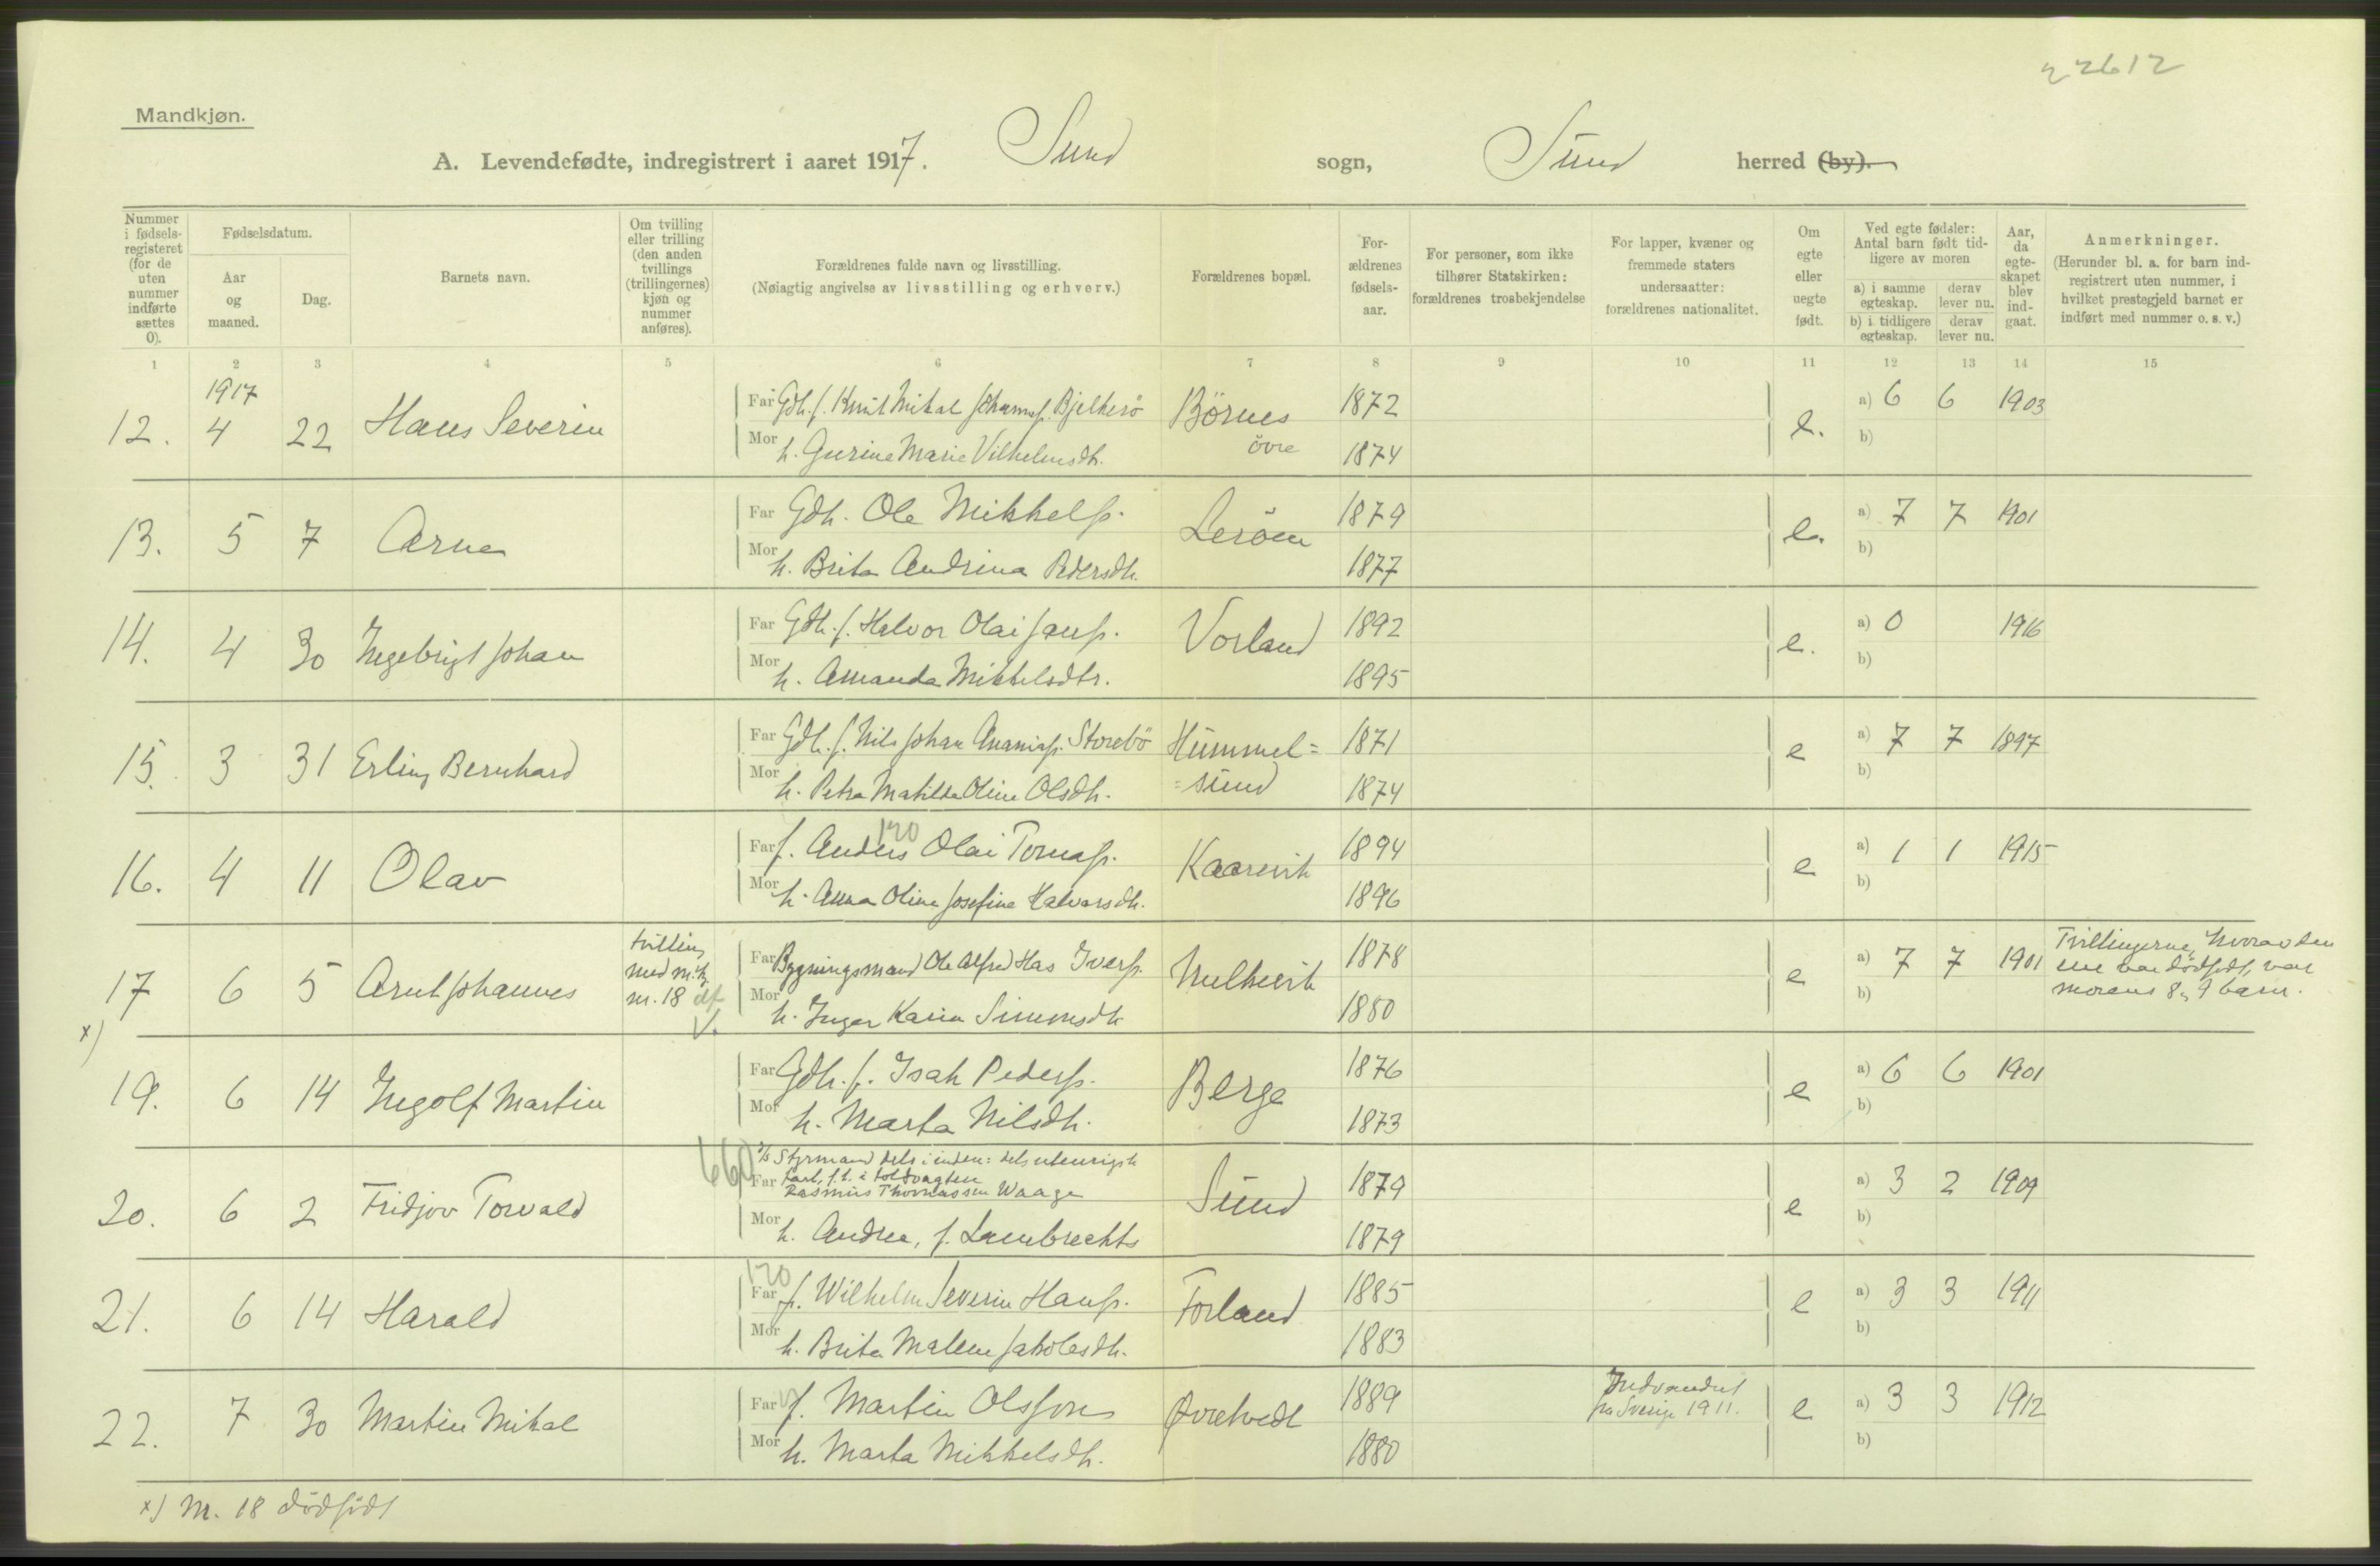 22612
Mandkjøn.
A. Levendefødte, indregistrert i aaret 1917. Sund sogn, Sund herred (by).
Nummer i fødsels-registeret (for de uten nummer indførte sættes 0).
Fødselsdatum.
Aar og maaned.
Dag.
Barnets navn.
Om tvilling eller trilling (den anden tvillings (trillingernes) kjøn og nummer anføres).
Forældrenes fulde navn og livsstilling.
(Nøiagtig angivelse av livsstilling og erhverv.)
Forældrenes bopæl.
For-ældrenes fødsels-aar.
For personer, som ikke tilhører Statskirken: forældrenes trosbekjendelse
For lapper, kvæner og fremmede staters undersaatter: forældrenes nationalitet.
Om egte eller uegte født.
Ved egte fødsler: Antal barn født tid-ligere av moren
a) i samme egteskap. derav lever nu.
b) i tidligere egteskap. derav lever nu.
Aar, da egte-skapet blev ind-gaat.
Anmerkninger.
(Herunder bl. a. for barn ind-registrert uten nummer, i hvilket prestegjeld barnet er indført med nummer o. s. v.)
1 2 3 4 5 6 7 8 9 10 11 12 13 14 15
1917
12. 4 22 Hans Severin Far Gdh. f. Knut Mikal Johannesf. Bjelkerö Börnes övre 1872 e. a) 6 6 1903
Mor h. Gurine Marie Vilhelmsdtr. 1874 b)
13. 5 7 Arne Far Gdh. Ole Mikkelss. Leröen 1879 e. a) 7 7 1901
Mor h. Brita Andrina Pedersdtr. 1877 b)
14. 4 30 Ingebrigt Johan Far Gdh. f. Halvor Olai Janss. Vorland 1892 e. a) 0 1916
Mor h. Amanda Mikkelsdtr. 1895 b)
15. 3 31 Erling Bernhard Far Gdh. f. Nils Johan Ananiass. Storebö Hummel= 1871 e a) 7 7 1897
Mor h. Petra Matilda Oline Olsdtr. =sund 1874 b)
16. 4 11 Olav Far f. Anders Olai Tomass. 120 Kaarevik 1894 e a) 1 1 1915
Mor h. Anna Oline Josefine Halvorsdtr. 1896 b)
17 6 5 Arnt Johannes tvilling med m.k. nr. 18 df V. Far Bygningsmand Ole Alfred Has Iverss. Hulkevik 1878 e a) 7 7 1901 Tvillingerne, hvorav den ene var dødfødt, var morens 8 og 9 barn.
Mor h. Inger Karin Simonsdtr 1880 b)
x)
19. 6 14 Ingolf Martin Far Gdh. f. Isak Pederss. Berge 1876 e a) 6 6 1901
Mor h. Marta Nilsdtr. 1873 b)
660
20. 6 2 Fridjov Torvald Far Styrmand dels i inden: dels utenrigsk fart, f. t. i toldvagten Rasmus Thomassen Waage Sund 1879 e a) 3 2 1909
Mor h. Andrea, f. Lambrechts 1879 b)
120
21. 6 14 Harald Far f. Wilhelm Severin Hanss. Forland 1885 e a) 3 3 1911
Mor h. Brita Malene Jakobsdtr. 1883 b)
22. 7 30 Martin Mikal Far f. Martin Olsson Øvretvedt 1889 Indvandret fra Sverige 1911. e a) 3 3 1912
Mor h. Marta Mikkelsdtr. 1880 b)
x) Nr. 18 dödfödt